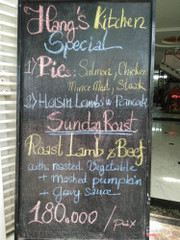 Hang's Kitchen
Special
1) Pie: Salmon, Chicken
Mince Meat, Steak
2) Hoisin Lamb & Pancake
Sunday Roast
Roast Lamb & Beef
with roasted Vegetable
+ mashed pumpkin
+ Gravy sauce
180.000 / pax